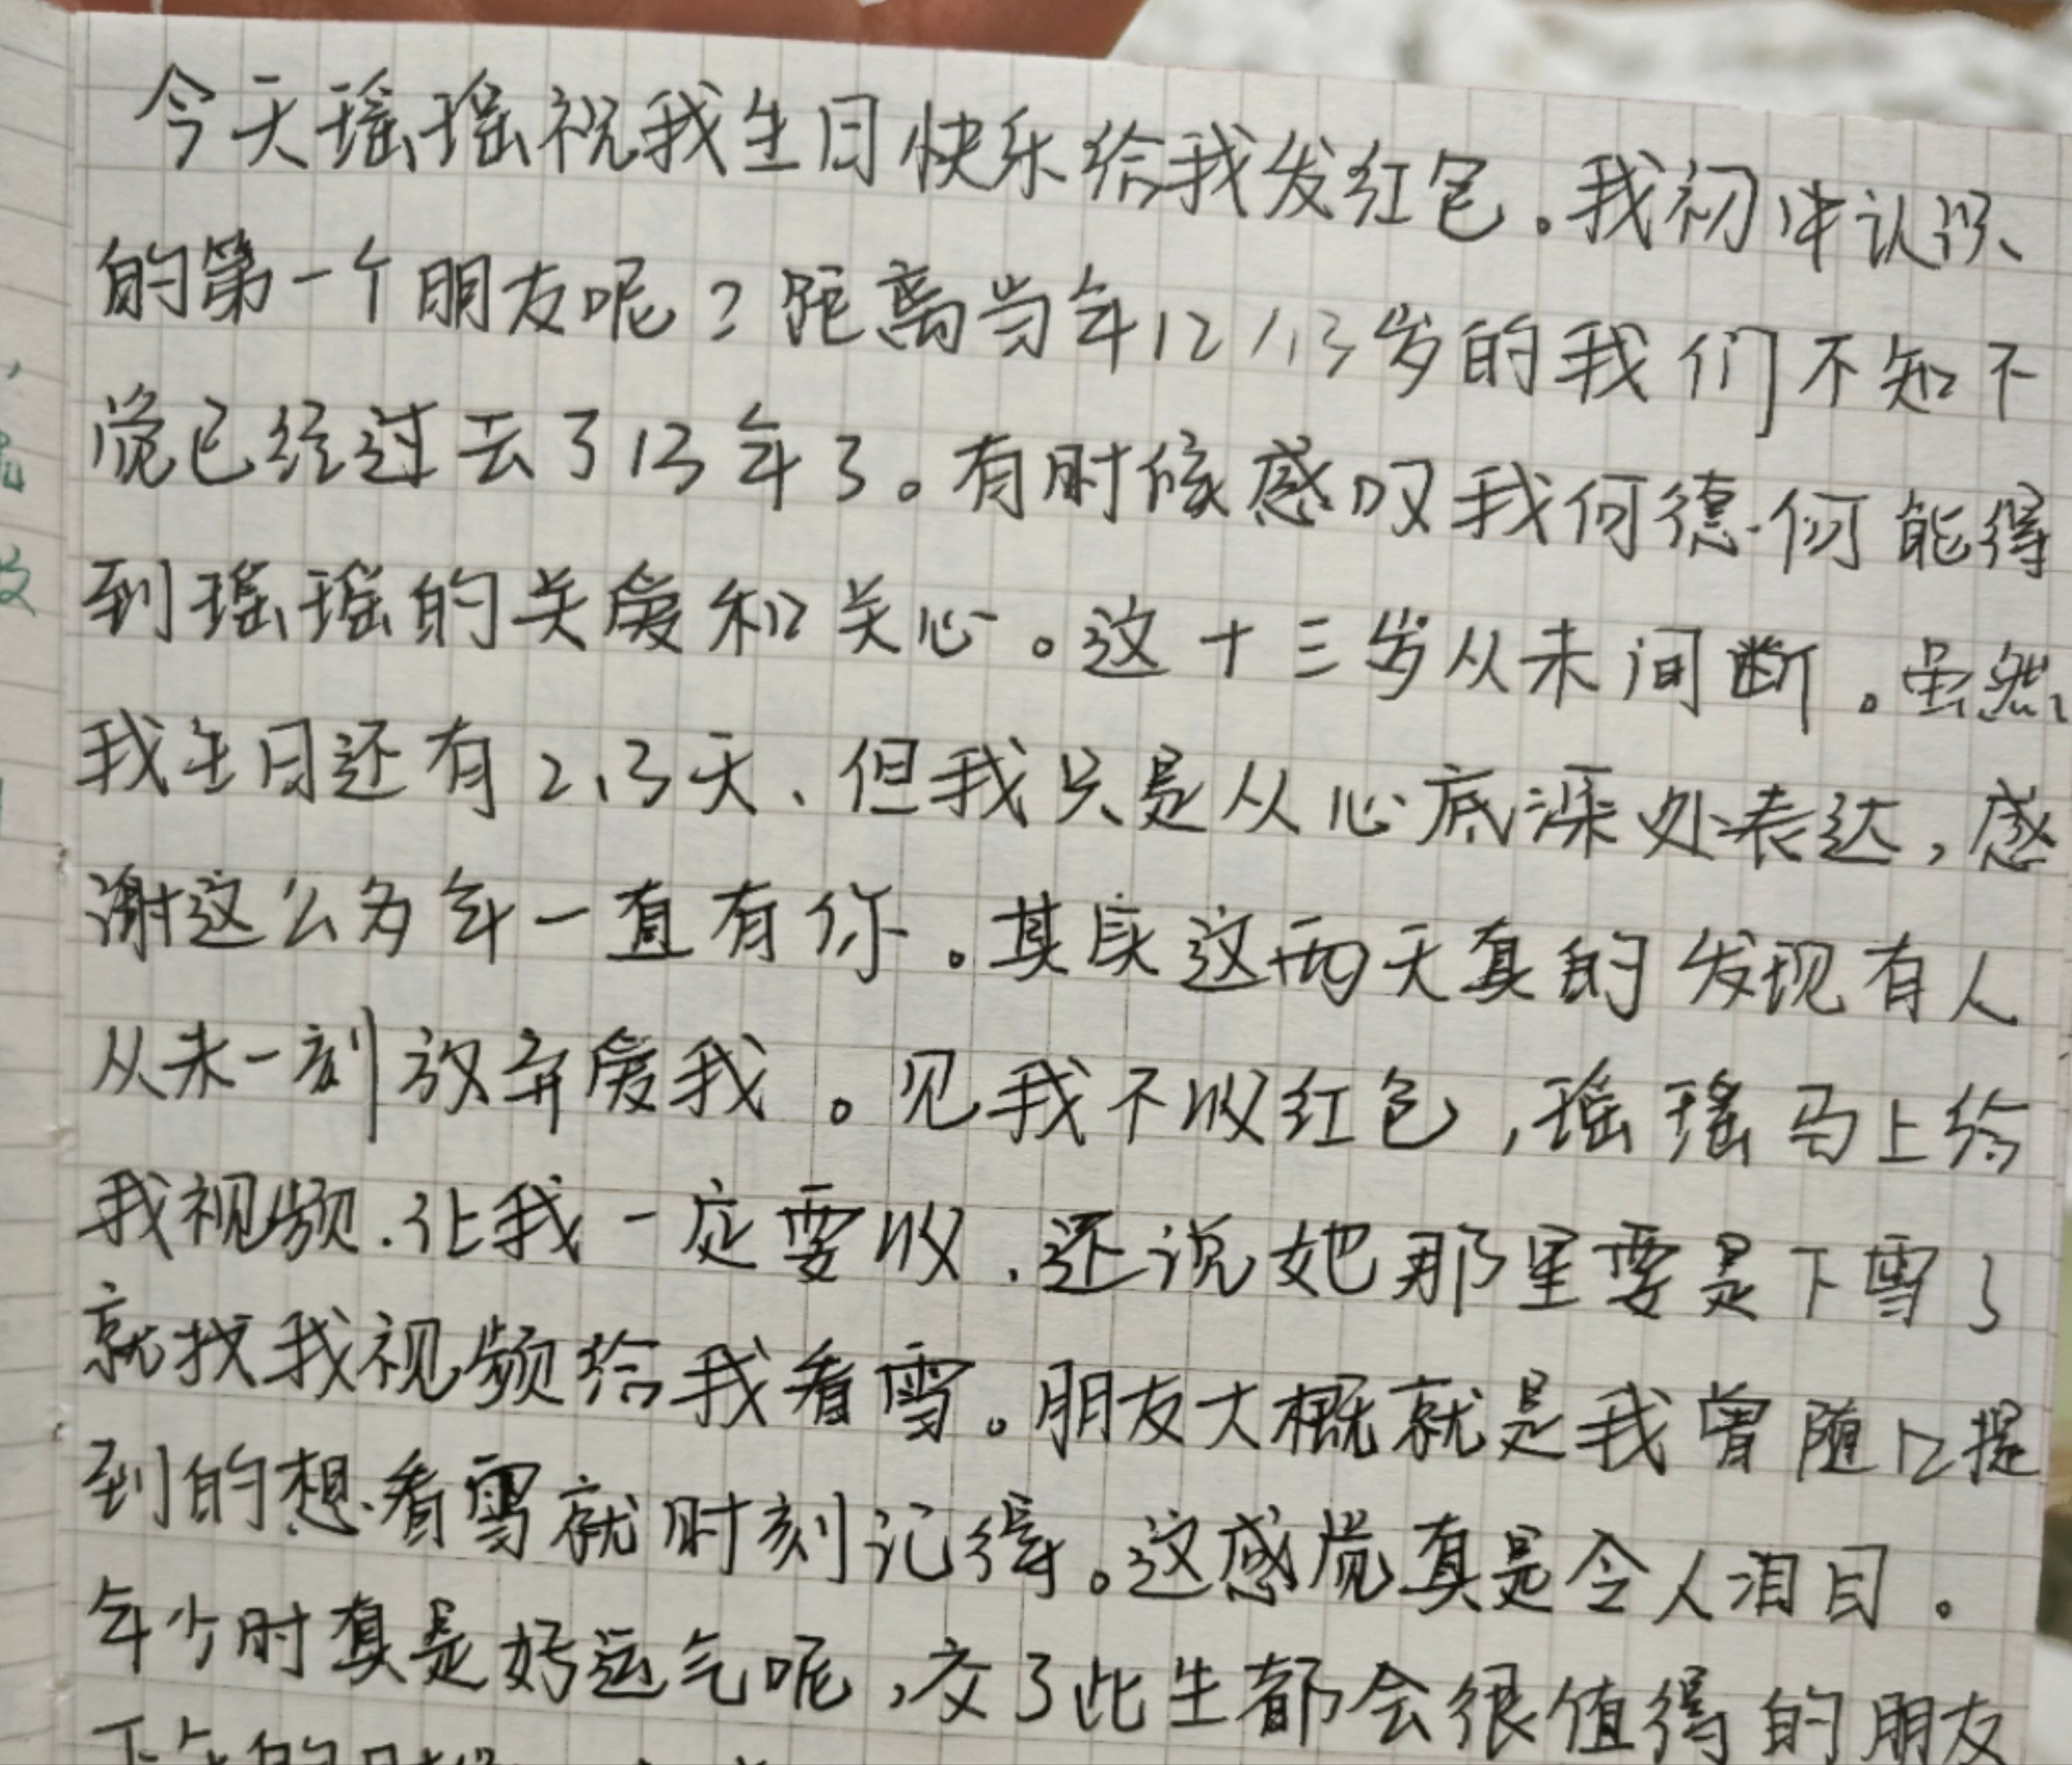 今天瑶瑶祝我生日快乐给我发红包。我初中认识
的第一个朋友呢？距离当年12/13岁的我们不知不
觉已经过去了13年了。有时候感叹我何德何能得
到瑶瑶的关爱和关心。这十三岁从未间断。虽然
我生日还有2、3天、但我只是从心底深处表达，感
谢这么多年一直有你。其实这两天真的发现有人
从未一刻放弃爱我。见我不收红包，瑶瑶马上给
我视频.让我一定要收.还说她那里要是下雪了
就找我视频给我看雪。朋友大概就是我曾随口提
到的想看雪就时刻记得。这感觉真是令人泪目。
年少时真是好运气呢,交了此生都会很值得的朋友